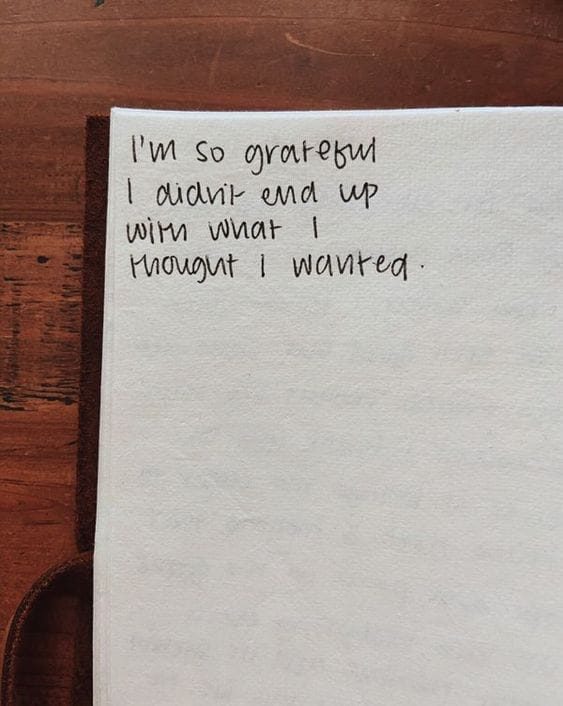 I'm so grateful
I didn't end up
with what I
thought I wanted.